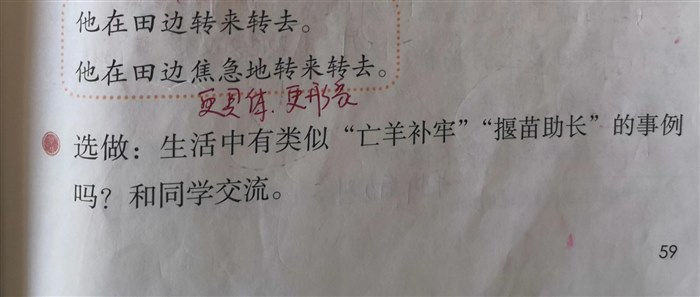 他在田边转来转去。
他在田边焦急地转来转去。
更具体.更形象
选做：生活中有类似“亡羊补牢”“揠苗助长”的事例
吗？和同学交流。
59